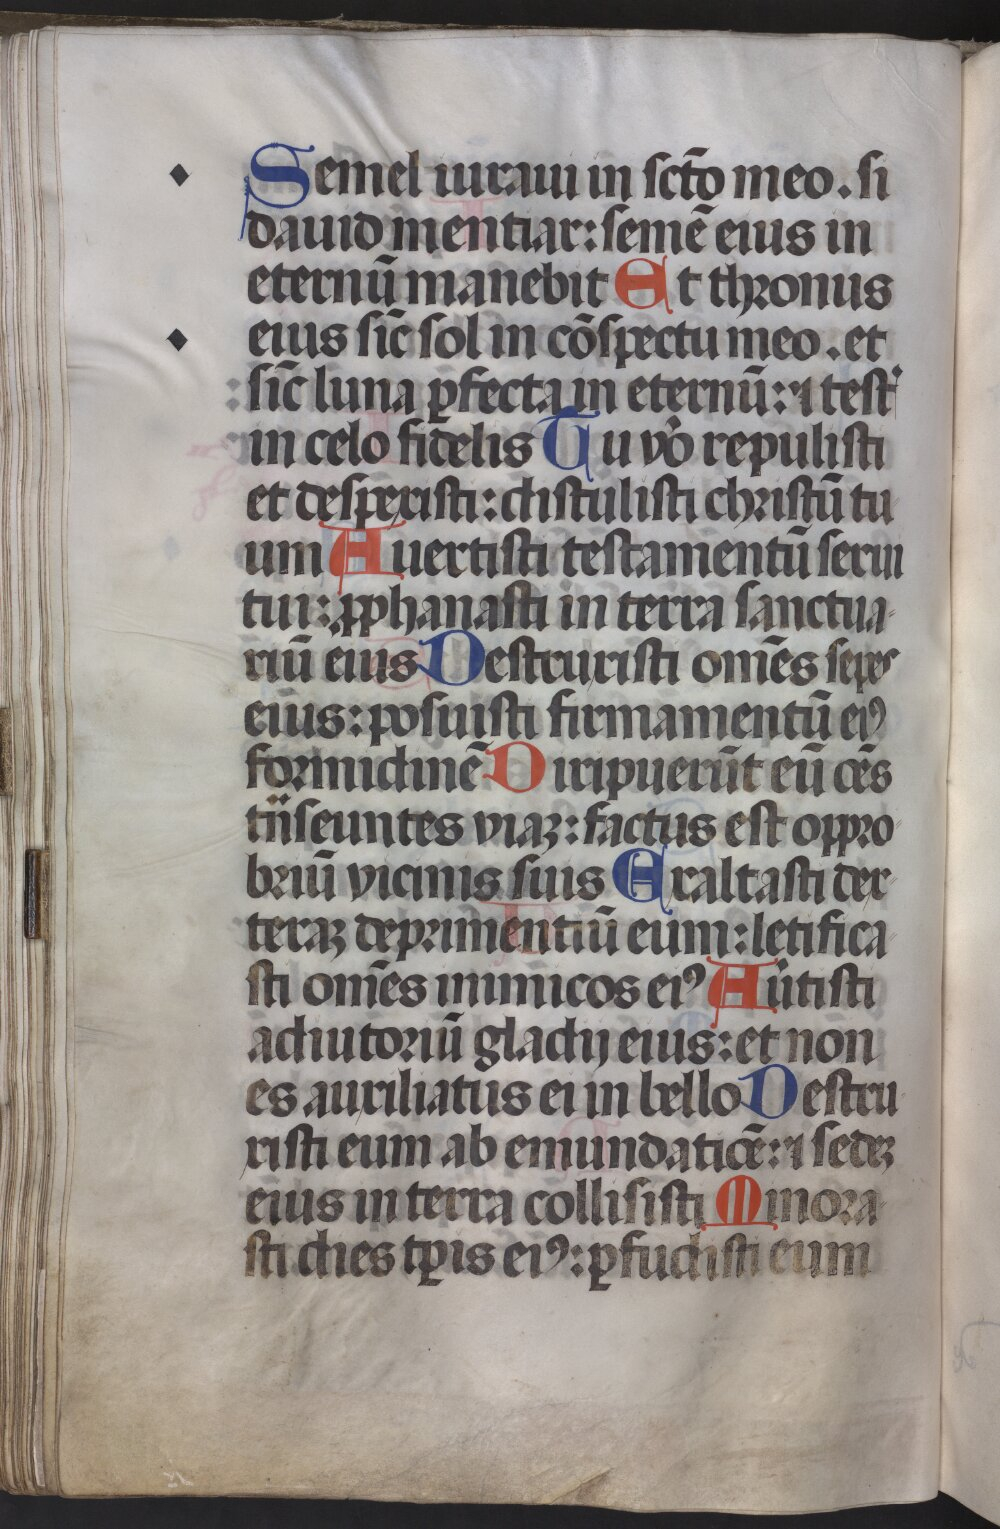 Semel iuraui in sctō meo. si
dauid mentiar: semē eius in
eternū manebit Et thronus
eius sic̄ sol in cōspectu meo. et
sic̄ luna ꝑfecta in eternū: ⁊ test̛
in celo fidelis Tu vo᷑ repulisti
et despexisti: distulisti christū tu
um Auertisti testamentū serui
tui: ꝓphanasti in terra sanctua
riū eius Destruxisti omēs sepes
eius: posuisti firmamentū eiꝰ
formidinē Diripuerūt eū oēs
tn̄seuntes viaꝝ: factus est oppro
briū vicinis suis Exaltasti dex
teraꝫ deprimentiū eum: letifica
sti omēs inimicos eiꝰ Aūtisti
adiutoriū gladij eius: et non
es auxiliatus ei in bello Destru
xisti eum ab emundatiōe: ⁊ sedeꝫ
eius in terra collisisti Minora
sti dies tꝑis eiꝰ: ꝑfudisti eum